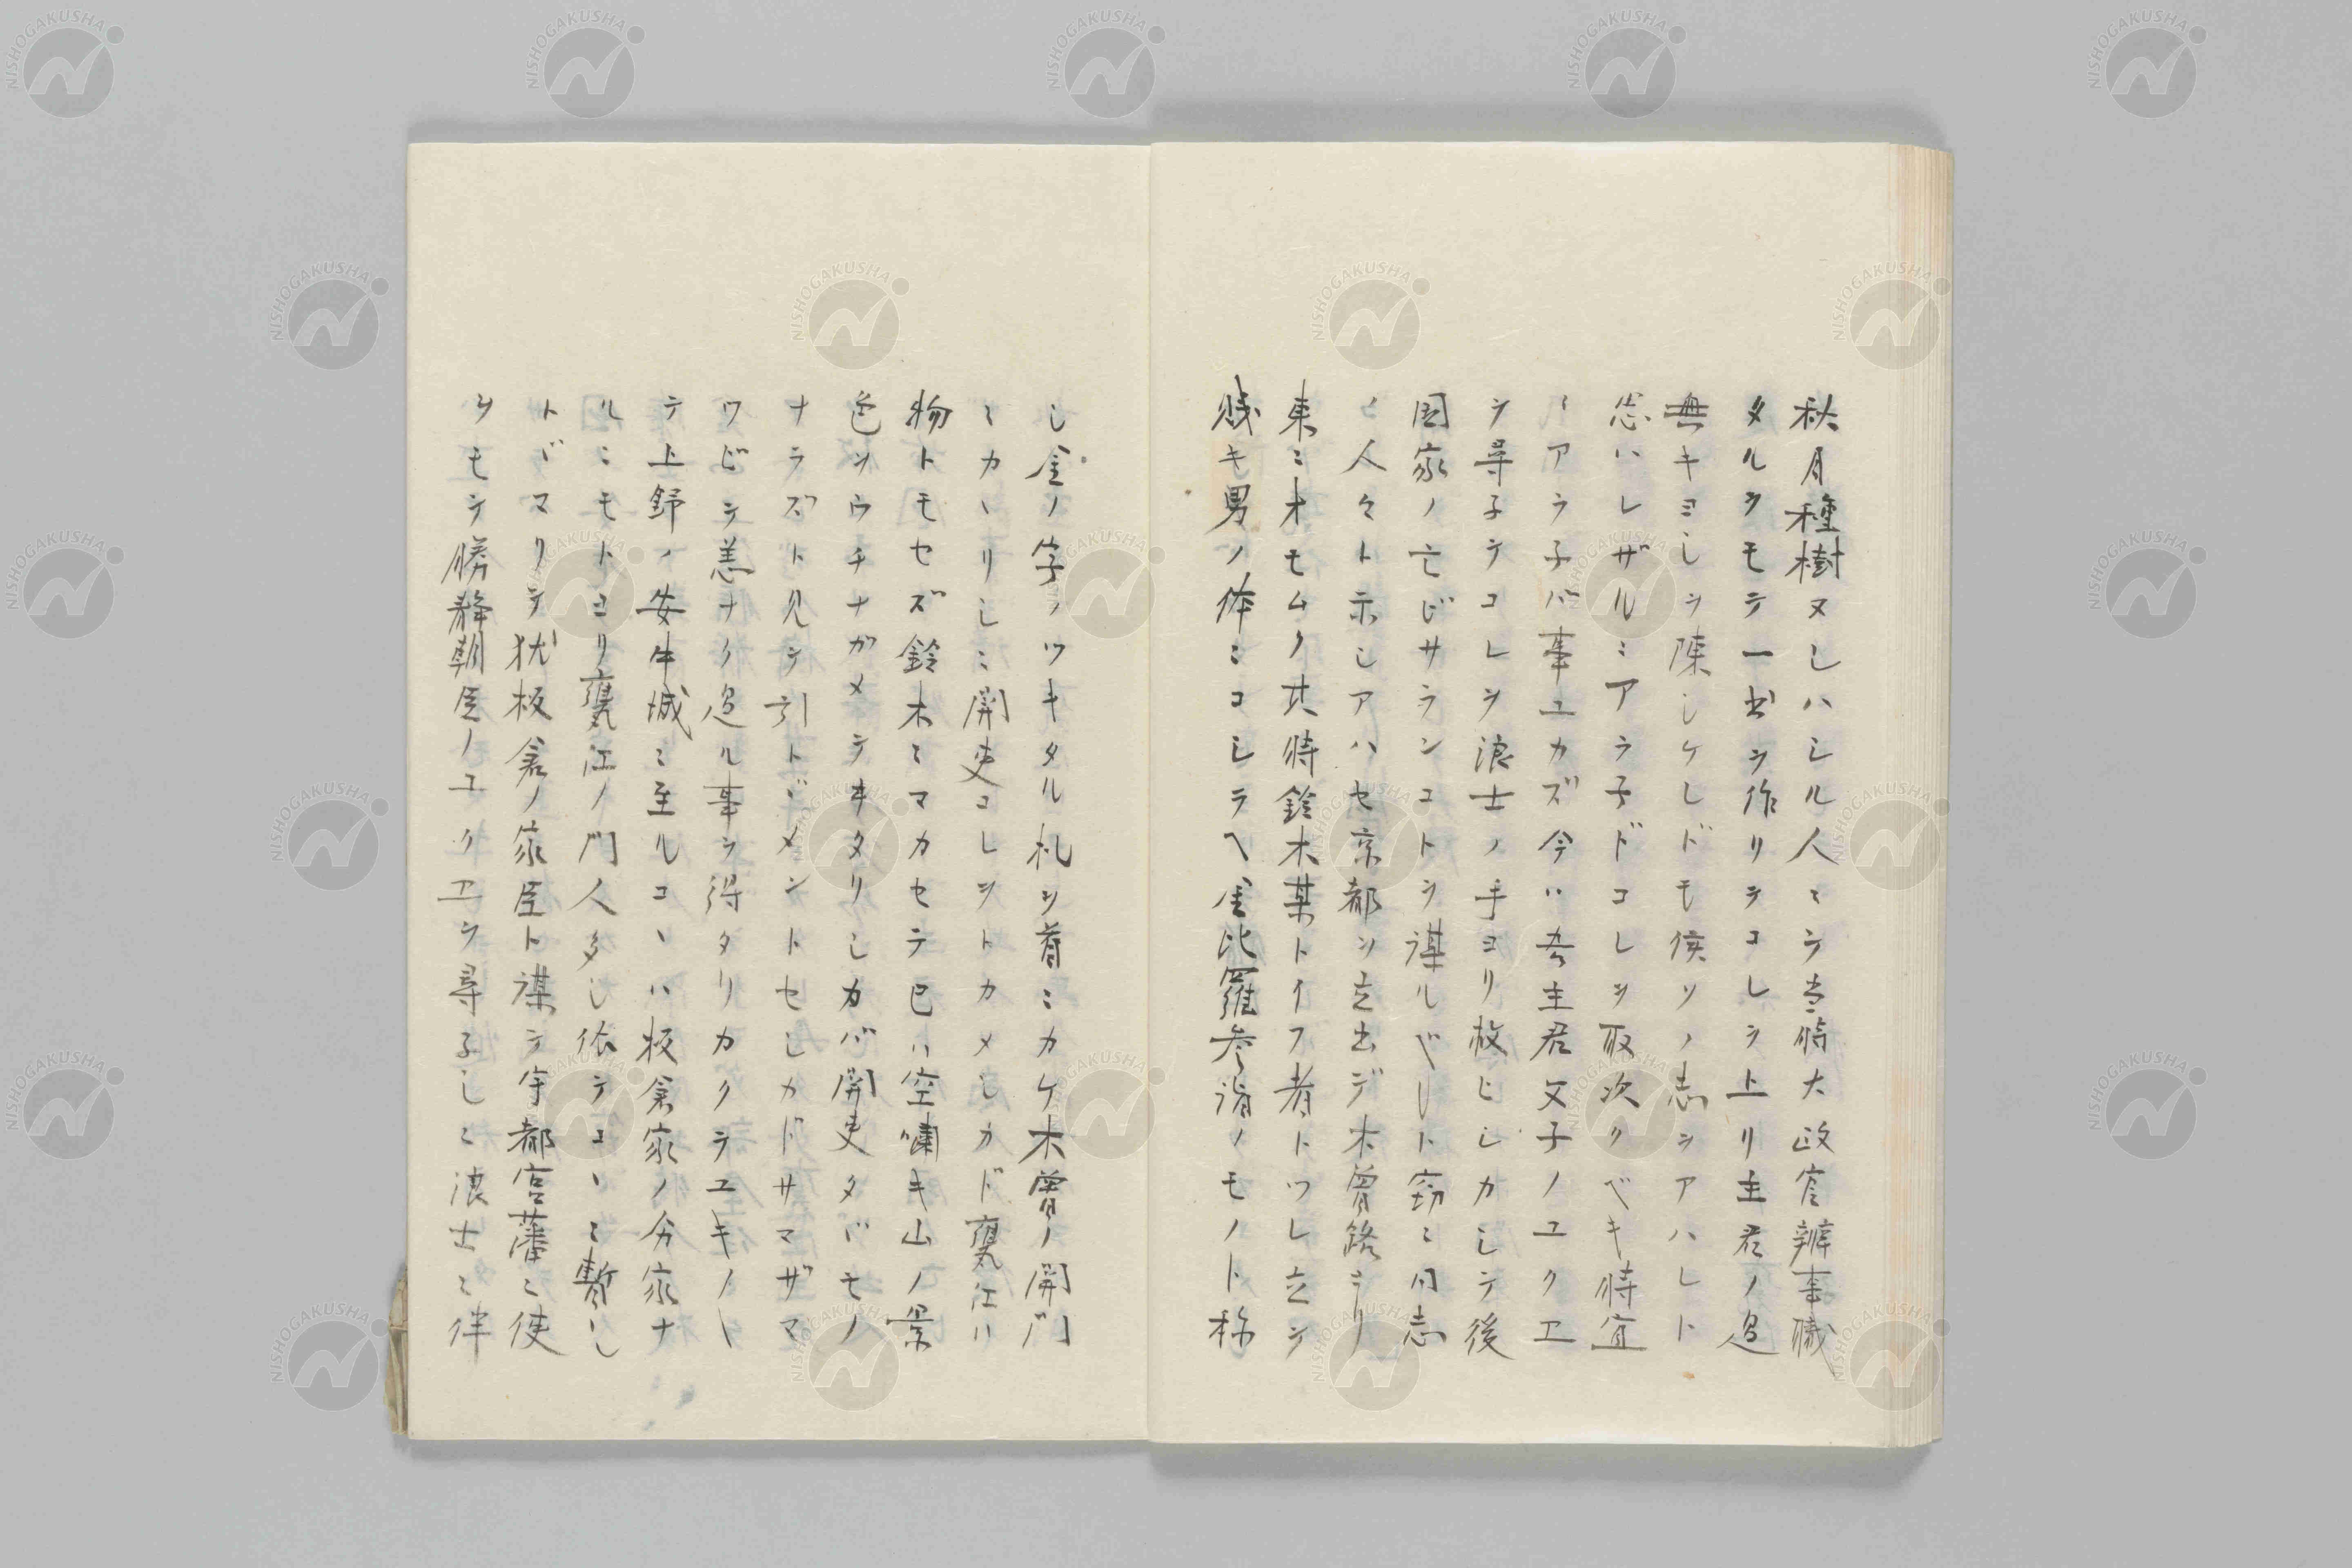 秋月種樹ヌシハシル人ミテ当時大政官辨事職
タルヲモテ一書ヲ作リテコレヲ上リ主君ノ過
無キヨシヲ陳シケレドモ侯ソノ志ヲアハレト
念ハレザルニアラ子ドコレヲ取次クベキ時宜
ニアラ子バ事ユカズ今ハ吾主君父子ノユクエ
ヲ尋子テコレヲ浪士ノ手ヨリ救ヒシカシテ後
国家ノ亡ビサランコトヲ謀ルベシト窃ニ同志
ノ人々ト示シアハセ京都ヲ立出デ木曽路ヨリ
東ニオモムク其時鈴木某トイフ者トツレ立テ
賎キ男ノ体ニコシラヘ金比羅参詣ノモノト称
シ金ノ字ノツキタル札ヲ首ニカケ木曽ノ関門
ニカヽリシニ関吏コレヲトカメシカド甕江ハ
物トモセズ鈴木ミマカセテ己ハ空嘯キ山ノ景
色ヲウチナガメテヰタリシカバ関吏タヾモノ
ナラズト見テ引トヾメントセシカドサマザマ
ワビテ恙ナク過ル事ヲ得タリカクテユキ〳〵
テ上野ノ安中城ニ至ルコヽハ板倉家ノ分家ナ
ルニモトヨリ甕江ノ門人多シ依テコヽニ暫シ
トヾマリテ扰板倉ノ家臣ト謀テ宇都宮藩ニ使
シモテ勝静朝臣ノユクエヲ尋子シニ浪士ニ伴